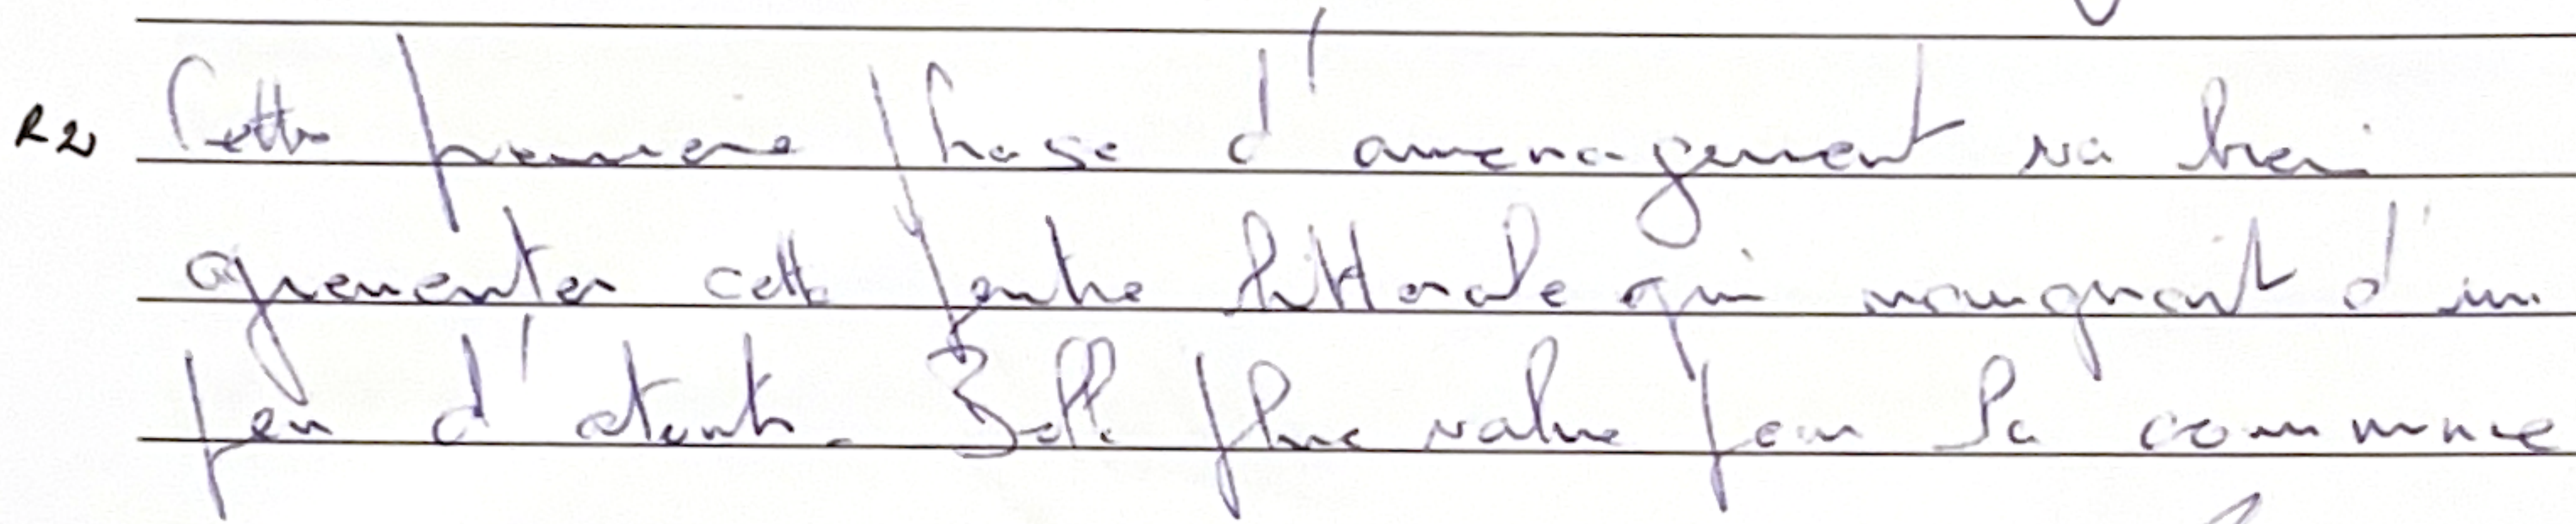 R2 Cette premiere phase d'amenagement va bien
agrementer cette partie littorale qui manquait d'un
peu d'attraits. Belle plus value pour la commune